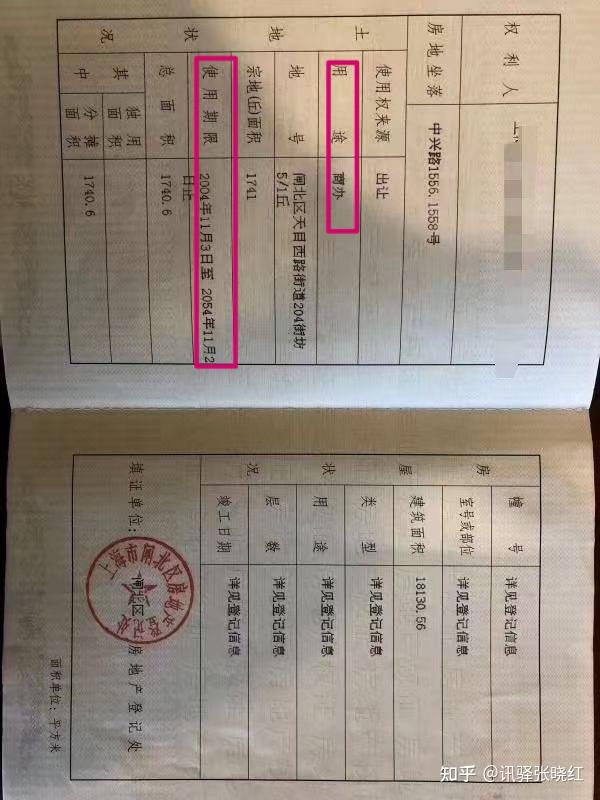 权利人
房地坐落 中兴路1556.1558号
土地状况
使用权来源 出让
用途 商办
地号 闸北区天目西路街道204街坊
5/1丘
宗地(丘)面积 1741
使用期限 2004年11月3日至 2054年11月2
日止
总面积 1740.6
其中
独用面积
分摊面积 1740.6
房屋状况
幢号 详见登记信息
室号或部位 详见登记信息
建筑面积 18130.56
类型 详见登记信息
用途 详见登记信息
层数 详见登记信息
竣工日期 详见登记信息
填证单位: 闸北区 房地产登记处
上海市闸北区房地产登记处
面积单位: 平方米
知乎 @讯驿张晓红